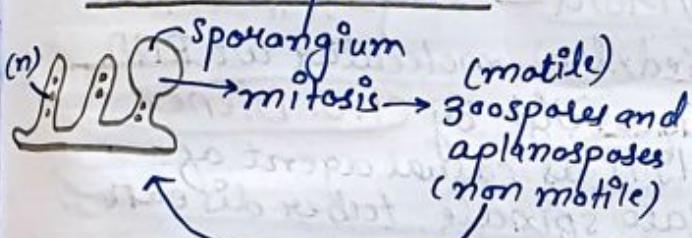 sporangium
(n)
mitosis
(motile)
zoospores and
aplanospores
(non motile)